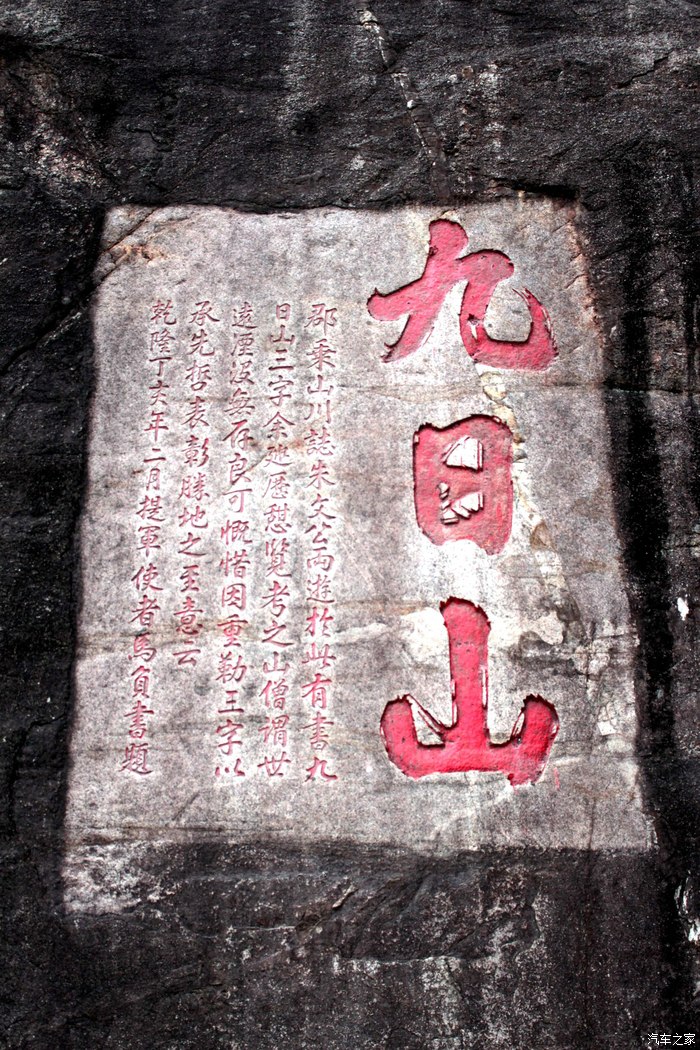 九日山
郡乘山川誌朱文公兩遊於此有書九
日山三字余巡歷憇覽考之山僧謂世
遠湮沒無存良可慨惜因重勒三字以
承先哲表彰勝地之至意云
乾隆丁亥年二月提軍使者馬負書題
汽车之家